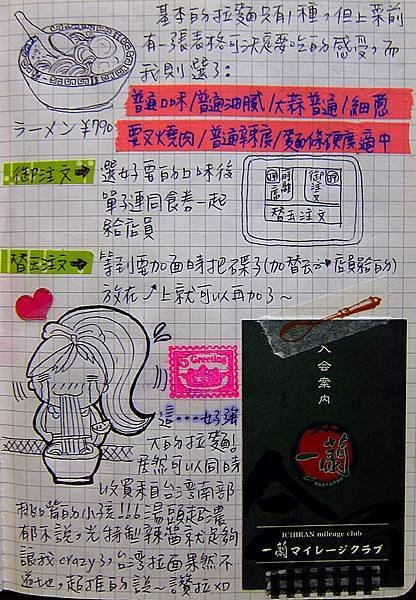 基本的拉麵只有1種,但上菜前
有一張表格可決定要吃的感受,而
我則選了:
普通口味/普通油膩/大蒜普通/細蔥
要叉燒肉/普通辣度/麵條硬度適中
ラーメン ¥790
御注文➡
選好要的口味後
單子連同食券一起
給店員
御注文
替玉注文
替玉注文➡
等到要加面時把碟子(加替玉時店員給的)
放在↗上就可以再加了~
Greeting
這・・・好強
大的拉麵!
居然可以同時
收買來自台灣南部
挑嘴的小孩!!!湯頭超濃
郁不說,光特製辣醬就足夠
讓我crazy了,台灣拉面果然不
道地,超推的說~讚拉XD
入会案内
一蘭
ICHIRAN mileage club
一蘭マイレージクラブ